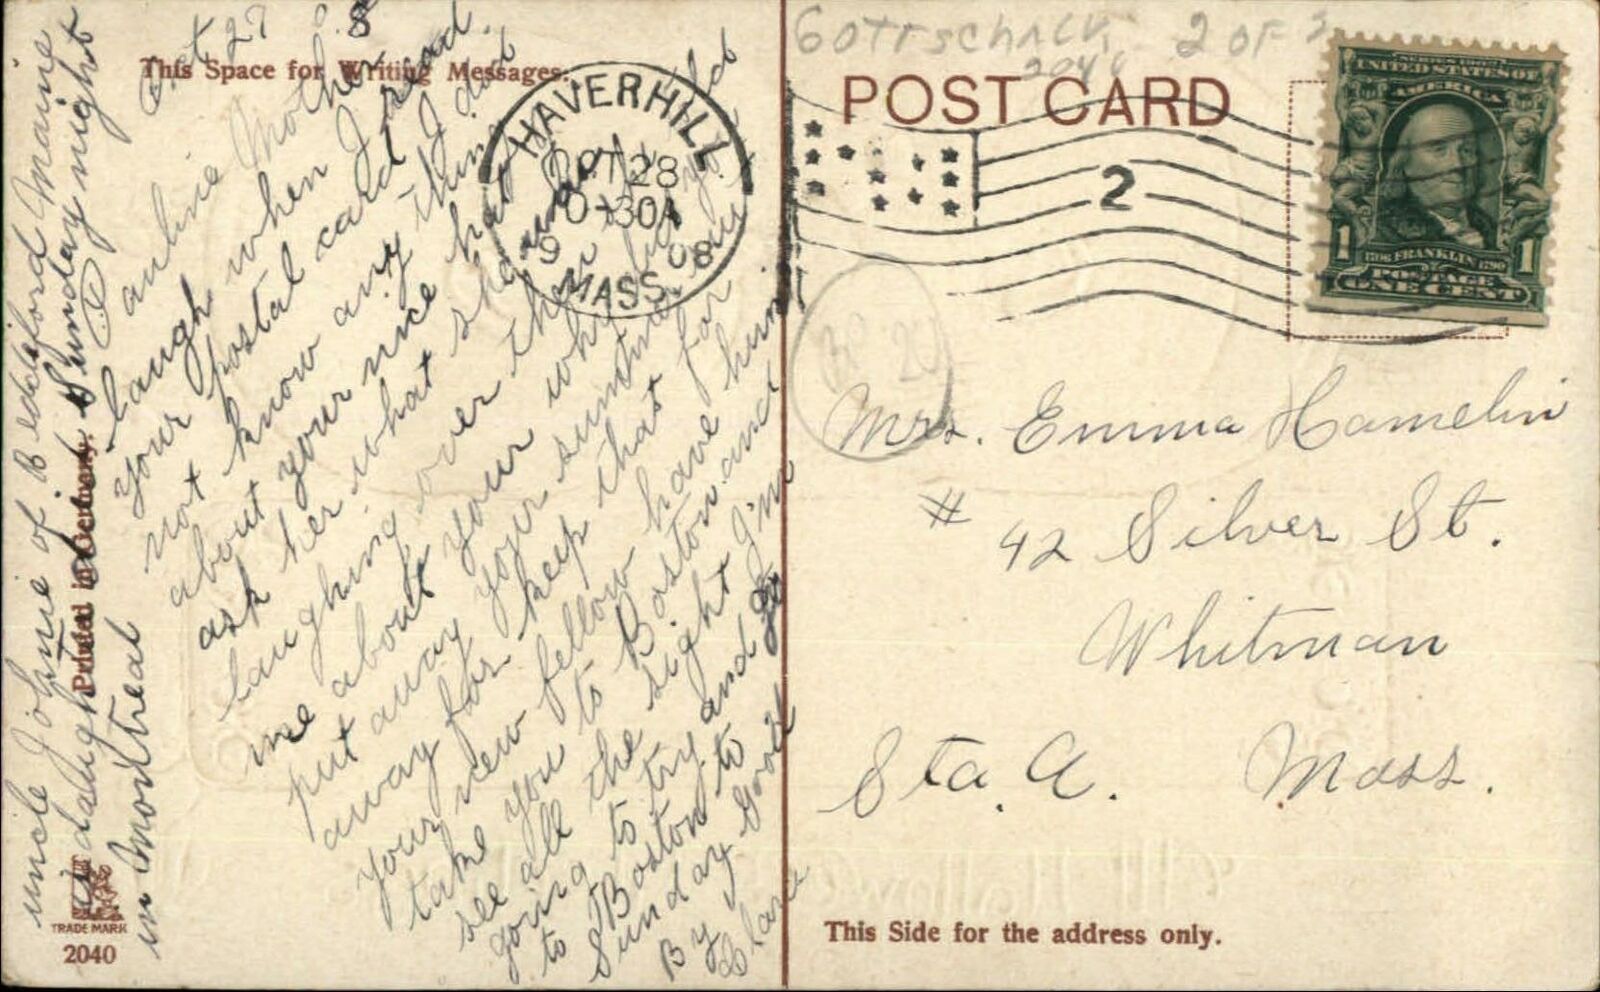 Oct 27 8
This Space for Writing Messages.
Pauline Mother
laugh when I read
your postal card I did
not know any thing
about your nice hat
ask her what she
laughing over then
me about your
put away your summer
away for keep that for
your new fellow have him
take you to Boston and
see all the sight I'm
going to try and go
to Boston to
Sunday Good
By
Clara
uncle Johnie of Biddeford Maine
is daughter died Sunday night
in Montreal
Printed in Germany.
TRADE MARK
2040
HAVERHILL
OCT 28
30A
08
MASS.
Gottschalk, 2 of
2040
POST CARD
2
SERIES 1902
UNITED STATES OF
AMERICA
1706 FRANKLIN 1790
POSTAGE
1 ONE CENT 1
Mrs. Emma Hamelin
# 42 Silver St.
Whitman
Sta. A. Mass.
This Side for the address only.